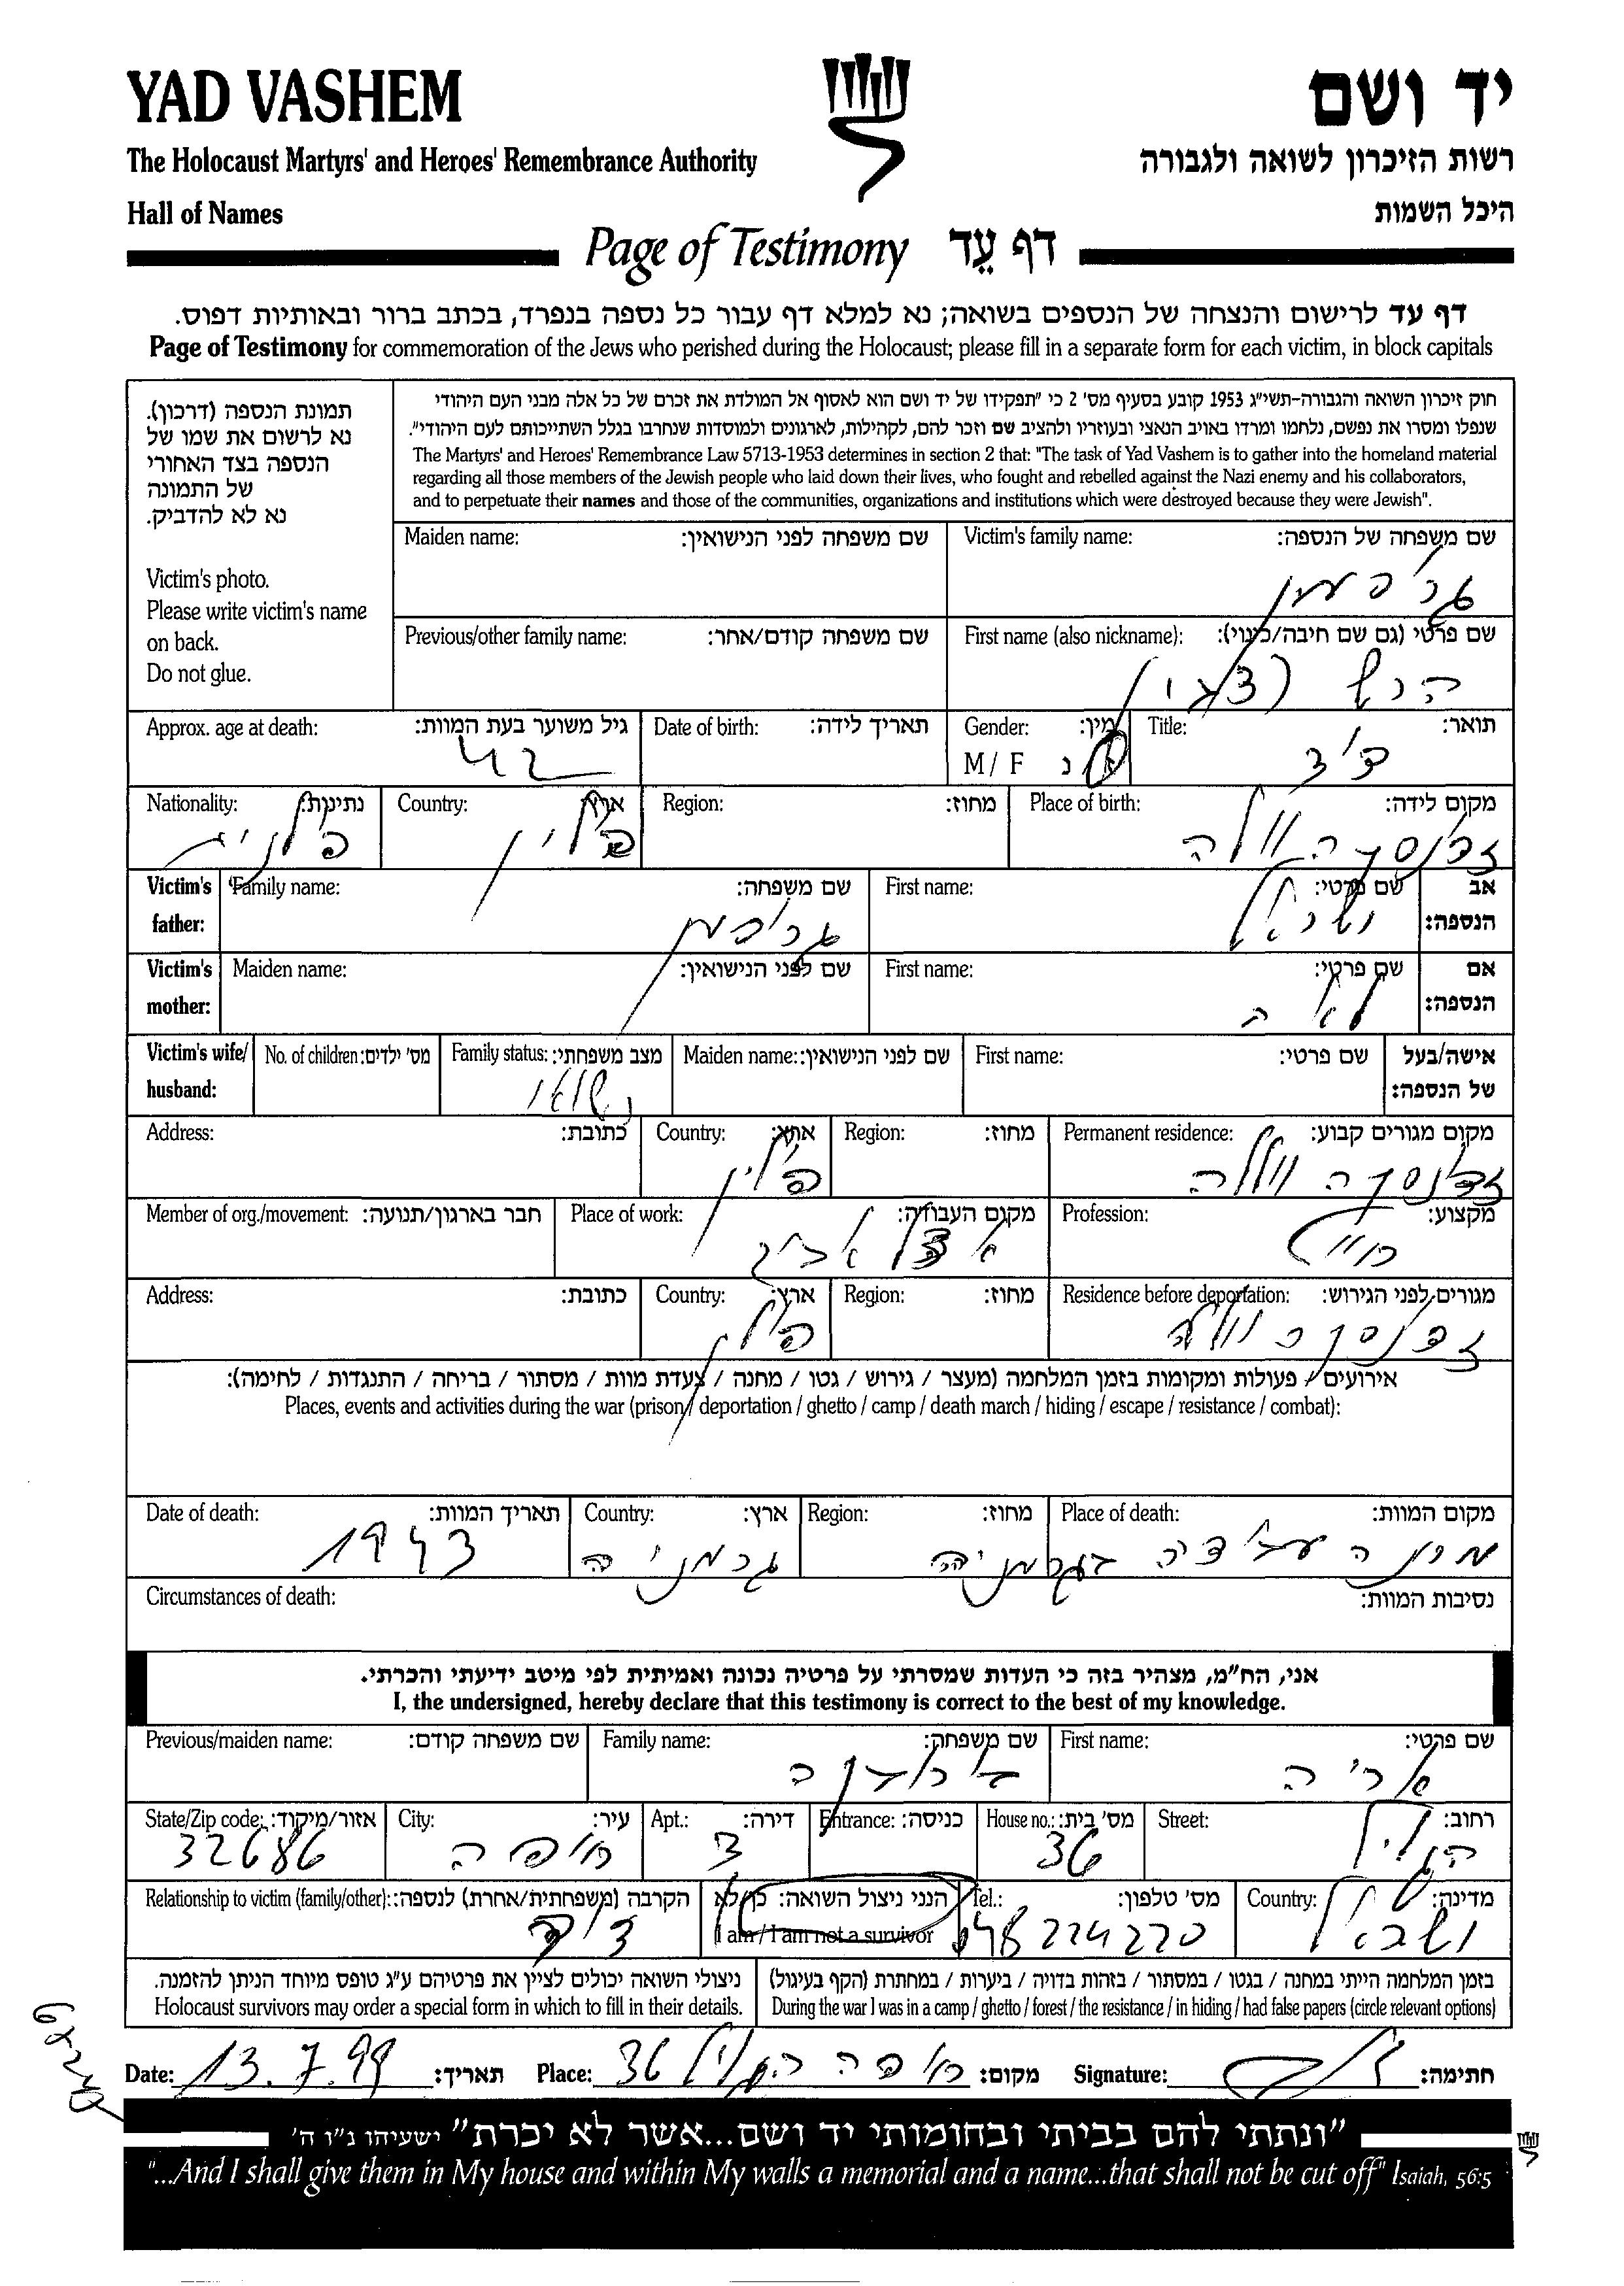 YAD VASHEM
יד ושם
The Holocaust Martyrs' and Heroes' Remembrance Authority
רשות הזיכרון לשואה ולגבורה
Hall of Names
היכל השמות
Page of Testimony דף עֵד
דף עד לרישום והנצחה של הנספים בשואה; נא למלא דף עבור כל נספה בנפרד, בכתב ברור ובאותיות דפוס.
Page of Testimony for commemoration of the Jews who perished during the Holocaust; please fill in a separate form for each victim, in block capitals
תמונת הנספה (דרכון).
נא לרשום את שמו של
הנספה בצד האחורי
של התמונה
נא לא להדביק.
Victim's photo.
Please write victim's name
on back.
Do not glue.
חוק זיכרון השואה והגבורה-תשי"ג 1953 קובע בסעיף מס' 2 כי "תפקידו של יד ושם הוא לאסוף אל המולדת את זכרם של כל אלה מבני העם היהודי
שנפלו ומסרו את נפשם, נלחמו ומרדו באויב הנאצי ובעוזריו ולהציב שם וזכר להם, לקהילות, לארגונים ולמוסדות שנחרבו בגלל השתייכותם לעם היהודי".
The Martyrs' and Heroes' Remembrance Law 5713-1953 determines in section 2 that: "The task of Yad Vashem is to gather into the homeland material
regarding all those members of the Jewish people who laid down their lives, who fought and rebelled against the Nazi enemy and his collaborators,
and to perpetuate their names and those of the communities, organizations and institutions which were destroyed because they were Jewish".
Maiden name: שם משפחה לפני הנישואין:
Victim's family name: שם משפחה של הנספה:
Previous/other family name: שם משפחה קודם/אחר:
First name (also nickname): שם פרטי (גם שם חיבה/כינוי):
הרש
Approx. age at death: גיל משוער בעת המוות:
42
Date of birth: תאריך לידה:
Gender: מין:
M / F ז נ
Title: תואר:
Nationality: נתינות:
Country: ארץ:
פולין
Region: מחוז:
Place of birth: מקום לידה:
זדונסקה וולה
Victim's father:
Family name: שם משפחה:
First name: שם פרטי:
אב הנספה:
Victim's mother:
Maiden name: שם לפני הנישואין:
First name: שם פרטי:
לאה
אם הנספה:
Victim's wife/ husband:
No. of children: מס' ילדים:
Family status: מצב משפחתי:
נשוי
Maiden name: שם לפני הנישואין:
First name: שם פרטי:
אישה/בעל של הנספה:
Address: כתובת:
Country: ארץ:
פולין
Region: מחוז:
Permanent residence: מקום מגורים קבוע:
זדונסקה וולה
Member of org./movement: חבר בארגון/תנועה:
Place of work: מקום העבודה:
Profession: מקצוע:
Address: כתובת:
Country: ארץ:
פולין
Region: מחוז:
Residence before deportation: מגורים לפני הגירוש:
זדונסקה וולה
אירועים / פעולות ומקומות בזמן המלחמה (מעצר / גירוש / גטו / מחנה / צעדת מוות / מסתור / בריחה / התנגדות / לחימה):
Places, events and activities during the war (prison / deportation / ghetto / camp / death march / hiding / escape / resistance / combat):
Date of death: תאריך המוות:
1943
Country: ארץ:
גרמניה
Region: מחוז:
Place of death: מקום המוות:
מחנה עבודה בגרמניה
Circumstances of death: נסיבות המוות:
אני, הח"מ, מצהיר בזה כי העדות שמסרתי על פרטיה נכונה ואמיתית לפי מיטב ידיעתי והכרתי.
I, the undersigned, hereby declare that this testimony is correct to the best of my knowledge.
Previous/maiden name: שם משפחה קודם:
Family name: שם משפחה:
First name: שם פרטי:
אריה
State/Zip code: אזור/מיקוד:
32686
City: עיר:
חיפה
Apt.: דירה:
3
Entrance: כניסה:
House no.: מס' בית:
36
Street: רחוב:
הגליל
Relationship to victim (family/other): הקרבה (משפחתית/אחרת) לנספה:
דוד
הנני ניצול השואה: כן/לא
I am / I am not a survivor
Tel.: מס' טלפון:
048224220
Country: מדינה:
ישראל
ניצולי השואה יכולים לציין את פרטיהם ע"ג טופס מיוחד הניתן להזמנה.
Holocaust survivors may order a special form in which to fill in their details.
בזמן המלחמה הייתי במחנה / בגטו / במסתור / בזהות בדויה / ביערות / במחתרת (הקף בעיגול)
During the war I was in a camp / ghetto / forest / the resistance / in hiding / had false papers (circle relevant options)
Date: 13.7.99 תאריך:
Place: חיפה הגליל 36 מקום:
Signature: חתימה:
"ונתתי להם בביתי ובחומותי יד ושם...אשר לא יכרת" ישעיהו נ"ו ה'
"...And I shall give them in My house and within My walls a memorial and a name...that shall not be cut off" Isaiah, 56:5